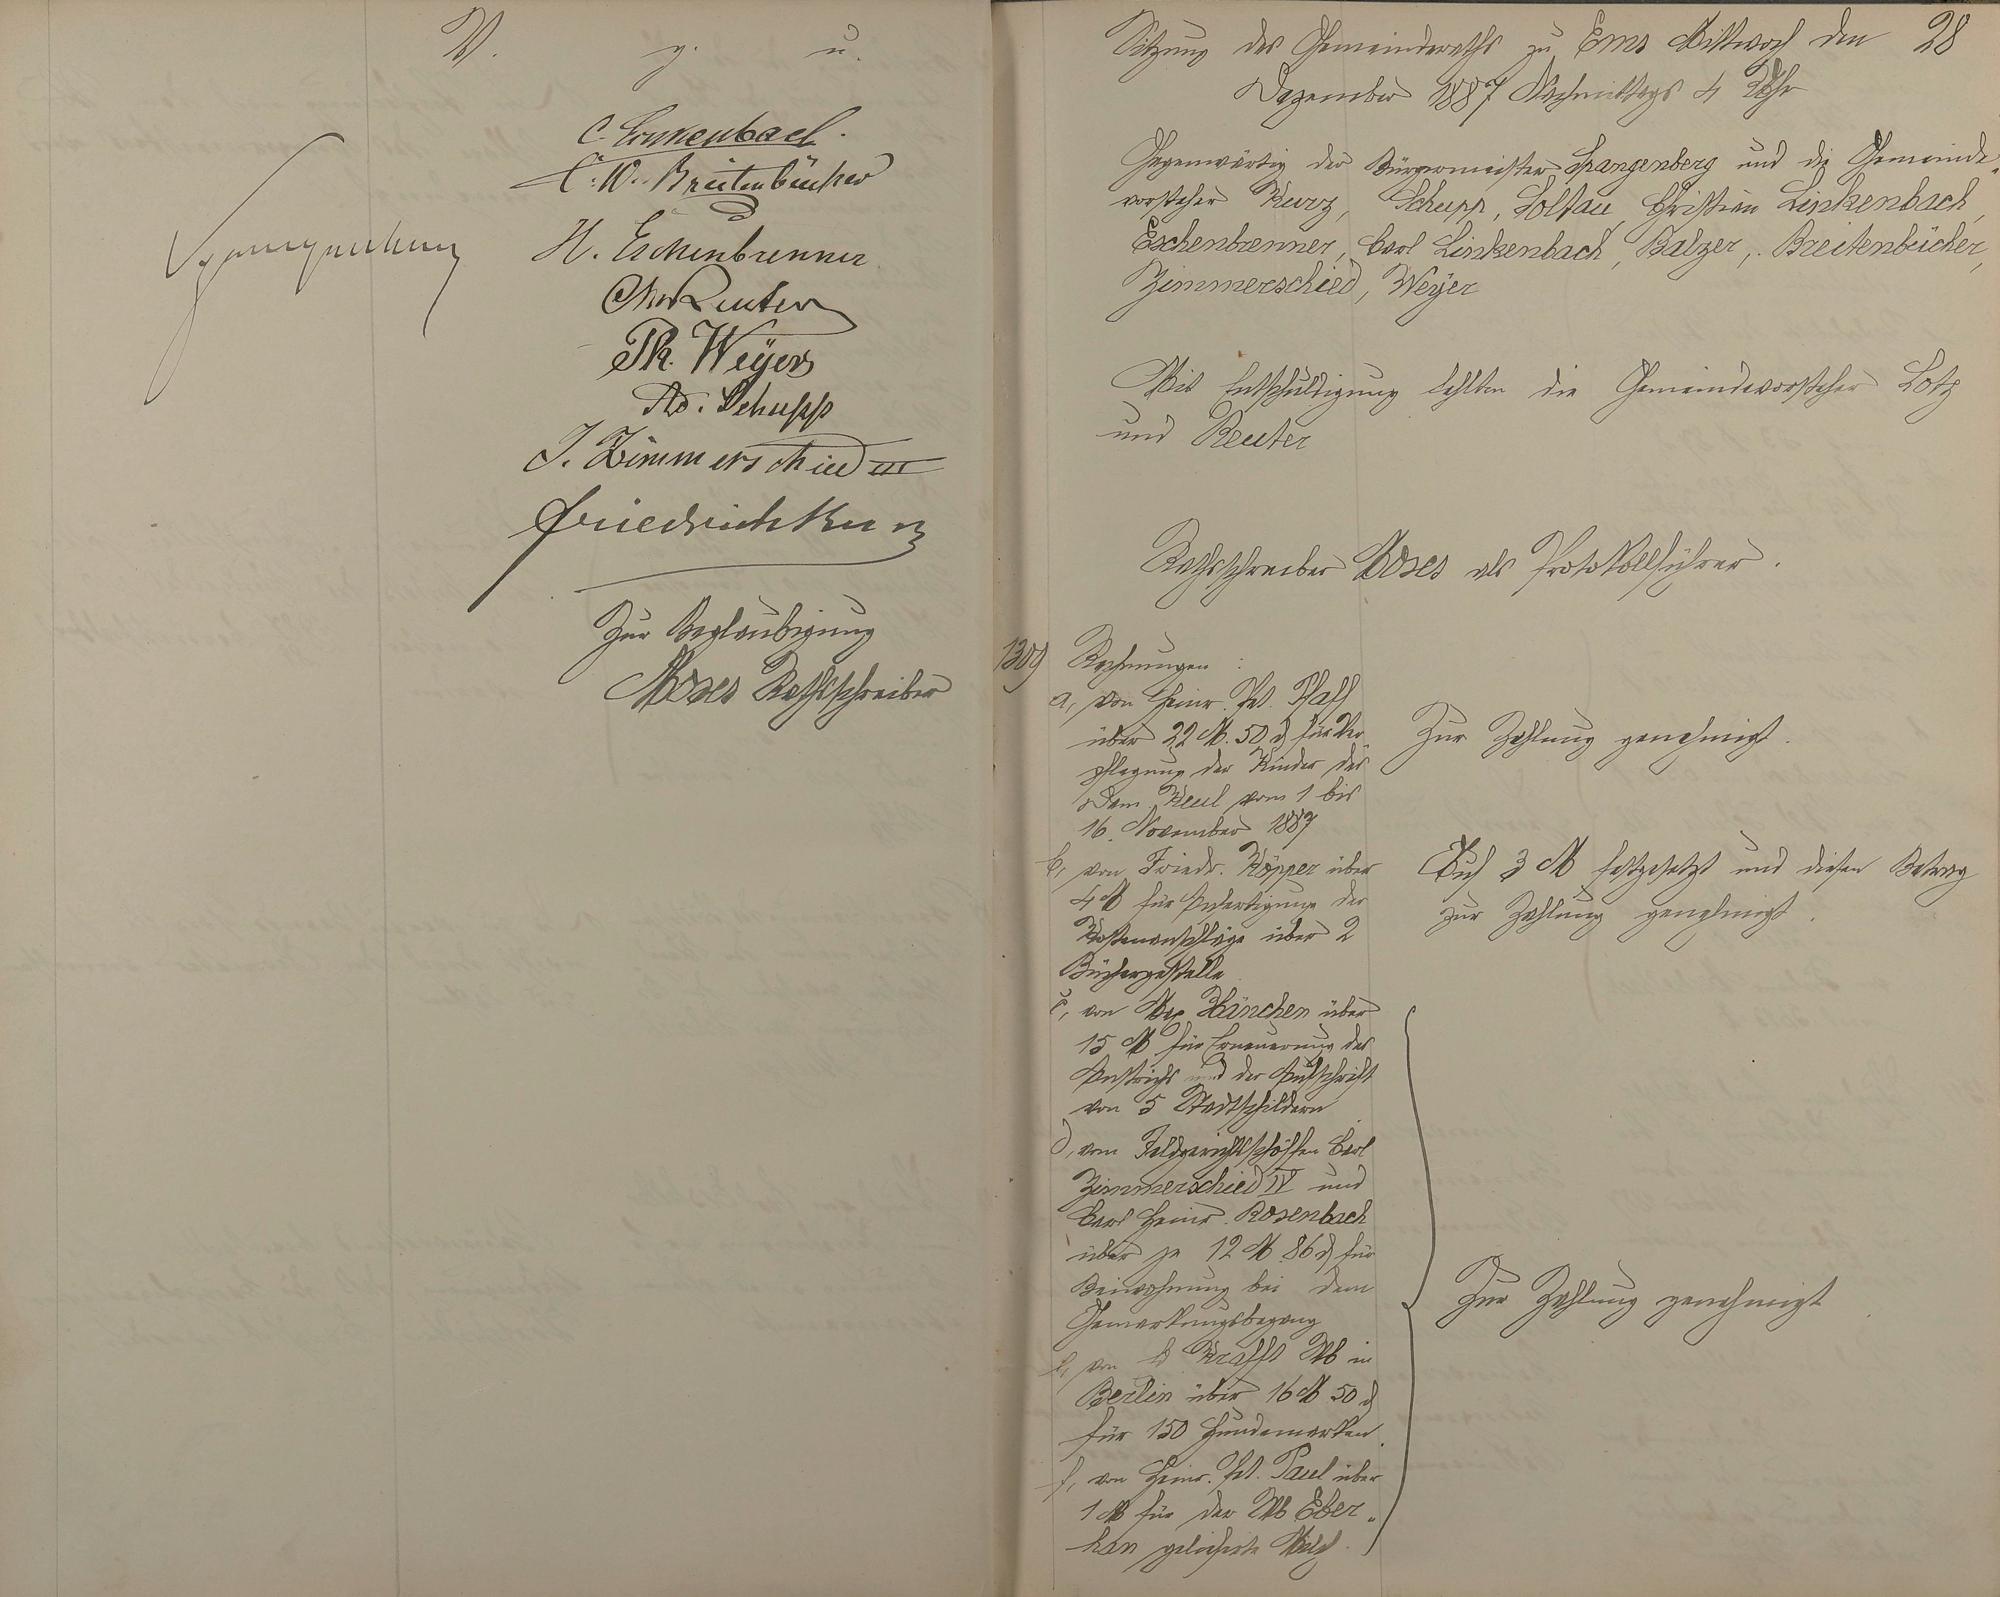 V. g. u.
C. Linkenbach.
C. W. Breitenbücher
H. Eschenbrenner
Chr Reuter
Th. Weyer
Ad. Schupp
J. Zimmerschied III
Friedrich Kurz
Spangenberg
Zur Beglaubigung
Moses Rathsschreiber
Sitzung des Gemeinderaths zu Ems Mittwoch den 28
Dezember 1887 Nachmittags 4 Uhr
Gegenwärtig der Bürgermeister Spangenberg und die Gemeinde-
vorsteher Kurz, Schupp, Soltau, Christian Linkenbach,
Eschenbrenner, Carl Linkenbach, Balzer, Breitenbücher,
Zimmerschied, Weyer
Mit Entschuldigung fehlten die Gemeindevorsteher Lotz
und Reuter
Rathsschreiber Moses als Protokollführer.
1309 Rechnungen:
a, von Heinr. Pet. Pfaff
über 22 M. 50 d für Ver
pflegung der Kinder des
Adam Keul vom 1 bis
16. November 1887
Zur Zahlung genehmigt.
b, von Friedr. Köpper über
4 M für Anfertigung der
Kostenanschläge über 2
Büchergestelle
Auf 3 M festgesetzt und diesen Betrag
zur Zahlung genehmigt.
c, von Max Hänchen über
15 M für Erneuerung des
Anstrichs und der Aufschrift
von 5 Stadtschildern
d, vom Feldgerichtsschöffen Carl
Zimmerschied IV und
Carl Heinr. Rosenbach
über je 12 M 86 d für
Beiwohnung bei dem
Gemarkungsbegang
e, von Krafft Wb in
Berlin über 16 M 50 d
für 150 Hundemarken
f, von Heinr. Pet. Paul über
1 M für der Wb Eber-
han gelieferte Milch.
Zur Zahlung genehmigt